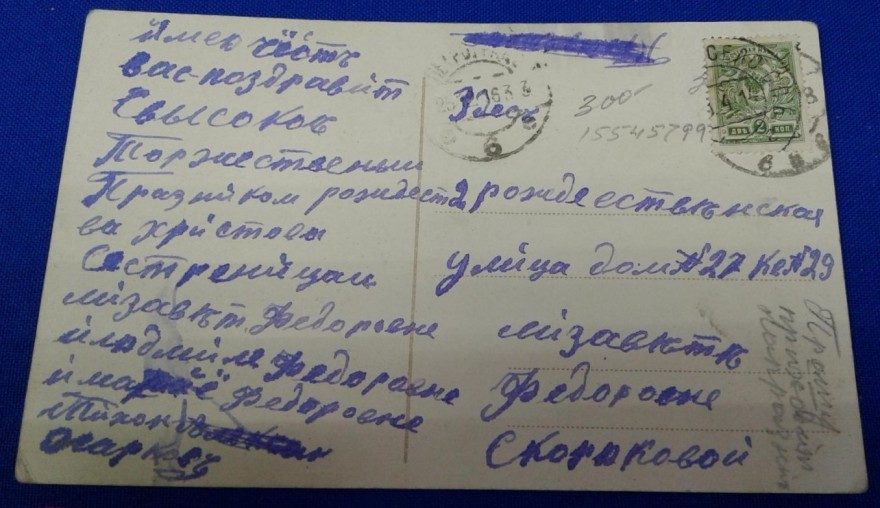 имею честь
вас поздравит
Свысоков
Торжественым
Празником рождест
ва христова
Сестреницаи
лизавѣт. Федоровне
илюдмиле Федоровне
и марие Федоровне
Тихон
огарковъ
Здесъ
300
1554579
2 рождественская
улица дом №27 кв №29
лизавѣтѣ
Федоровне
Скоряковой
Прошу